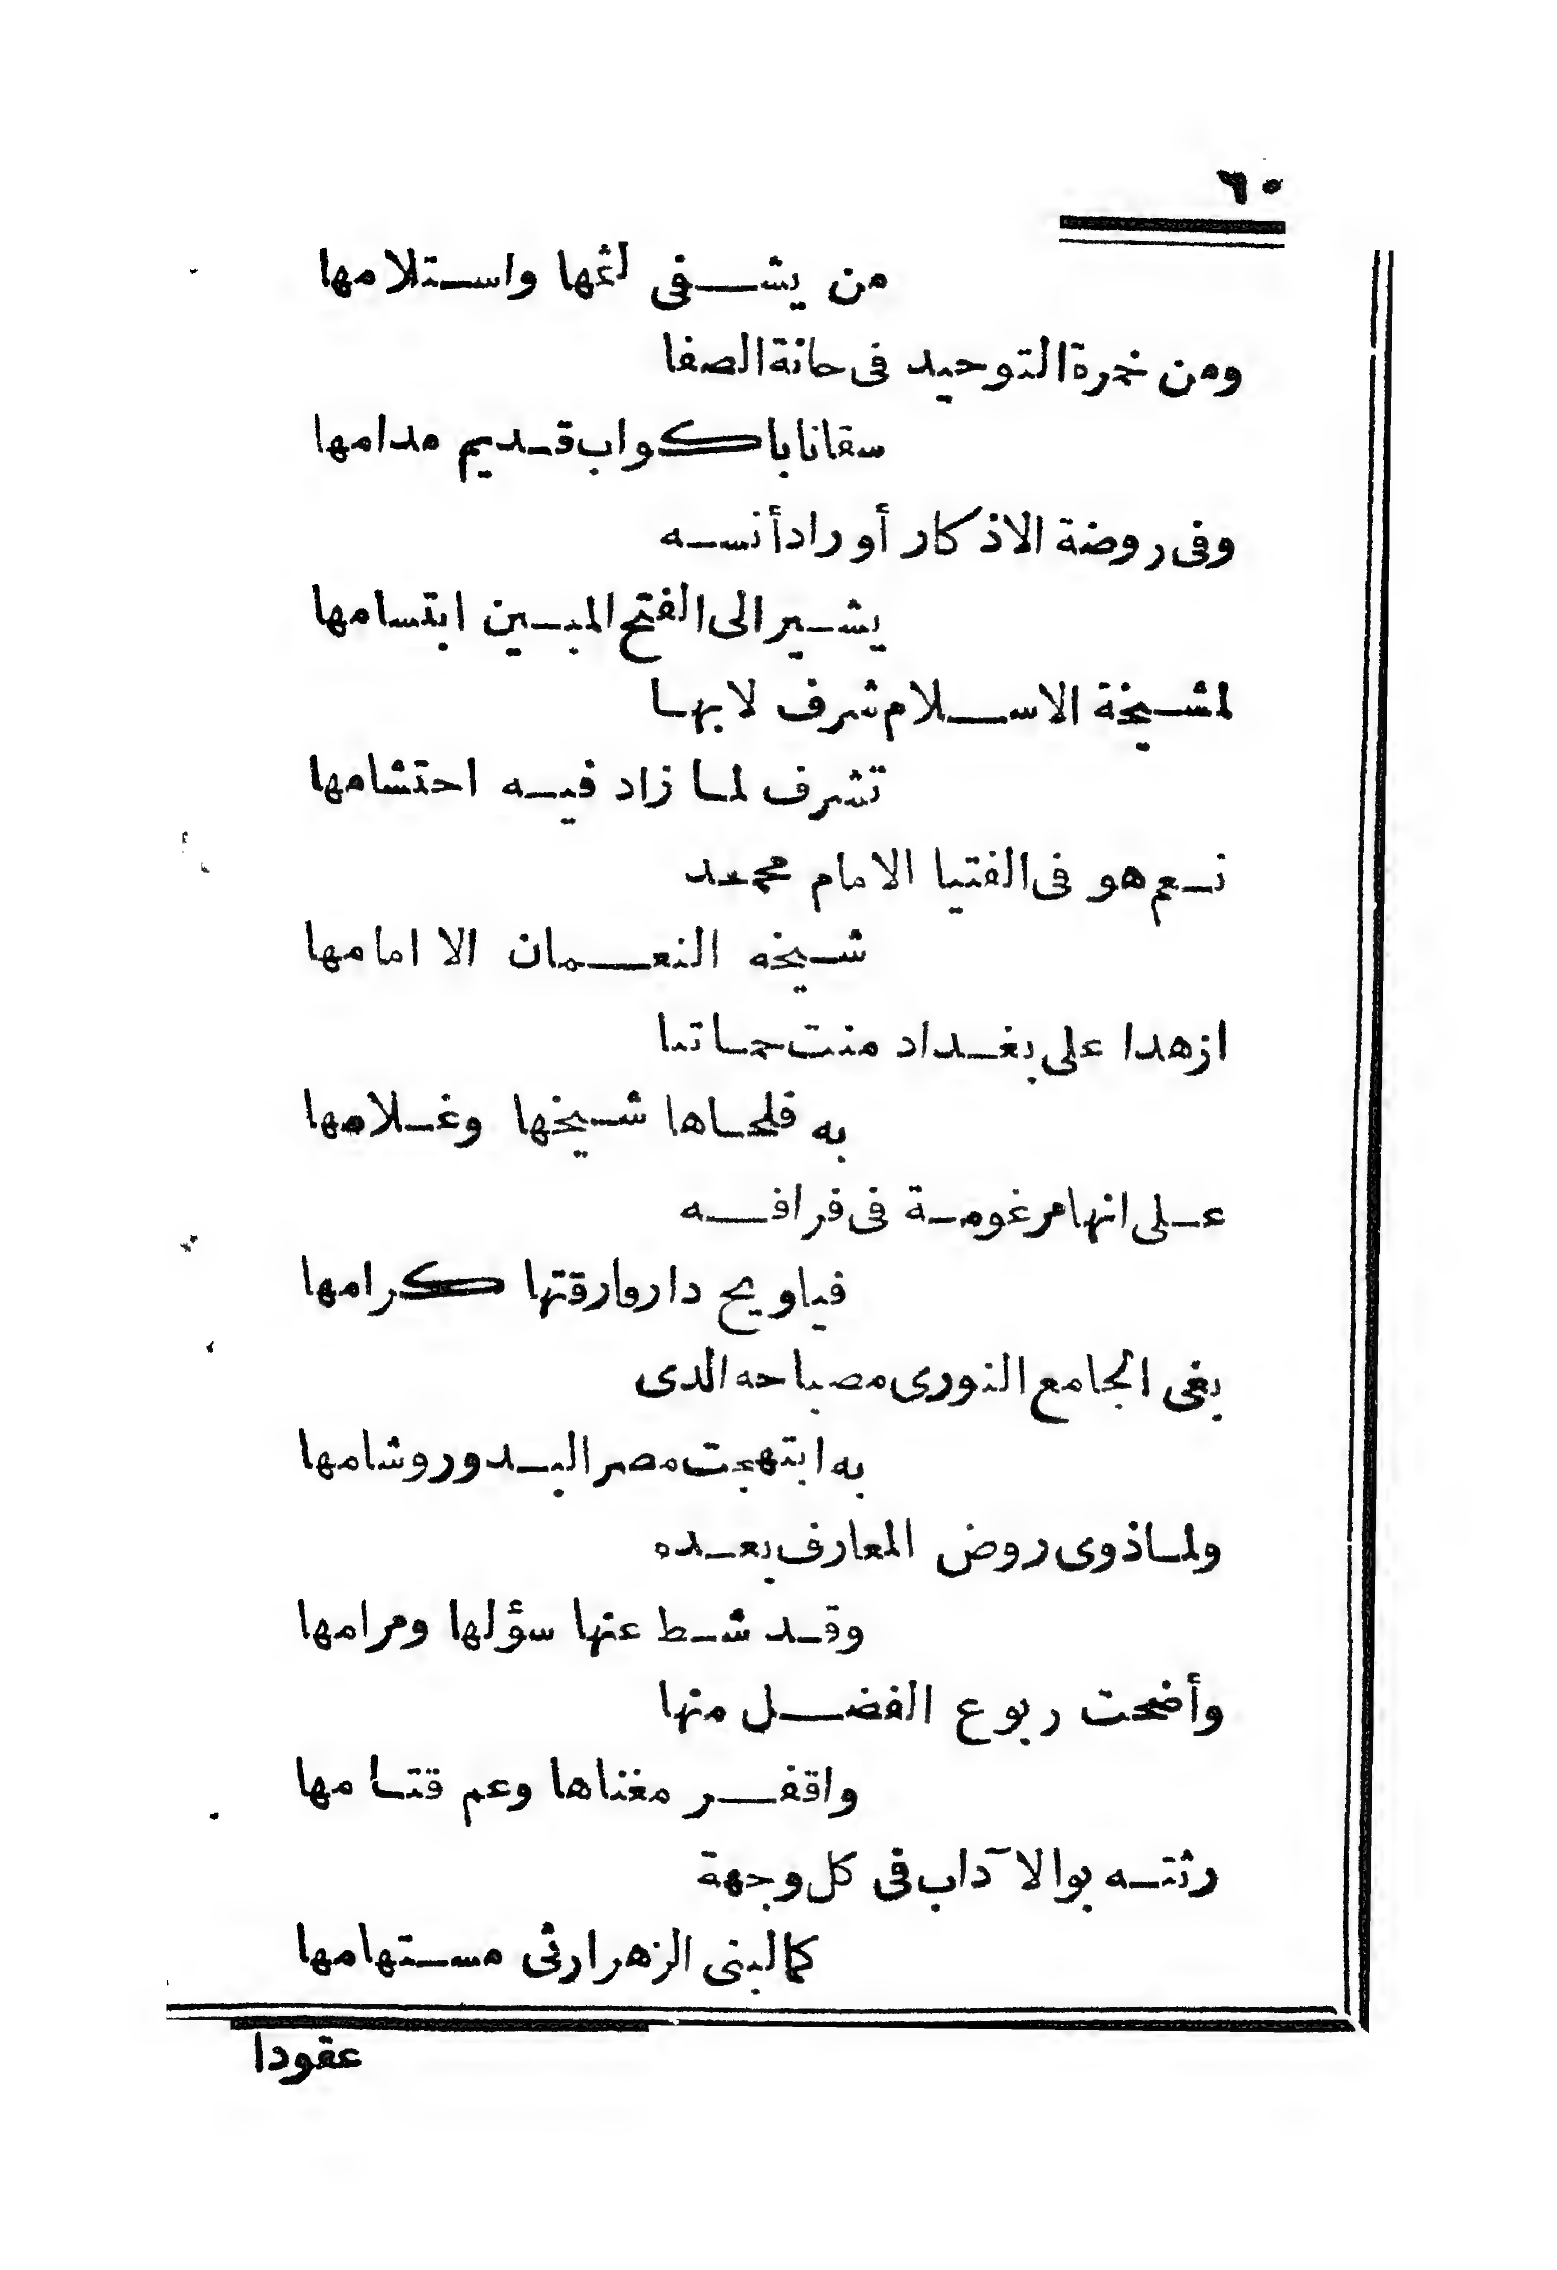 ٦٠
من يشفى لثمها واستلامها
ومن خمرة التوحيد فى حانة الصفا
سقانا باكواب قديم مدامها
وفى روضة الاذكار أوراد أنسه
يشير الى الفتح المبين ابتسامها
لمشيخة الاسلام شرف لا بها
تشرف لما زاد فيه احتشامها
نعم هو فى الفتيا الامام محمد
شيخه النعمان الا امامها
ازهدا على بغداد منت حماتنا
به فلحاها شيخها وغلامها
على انها مرغومة فى فراقه
فياويح دار فارقتها كرامها
بغى الجامع النورى مصباحه الدى
به ابتهجت مصر البدور وشامها
ولما ذوى روض المعارف بعده
وقد شط عنها سؤلها ومرامها
وأضحت ربوع الفضل منها
واقفر مغناها وعم قتامها
رثته بوالا آداب فى كل وجهة
كما لبنى الزهرا رثى مستهامها
عقودا